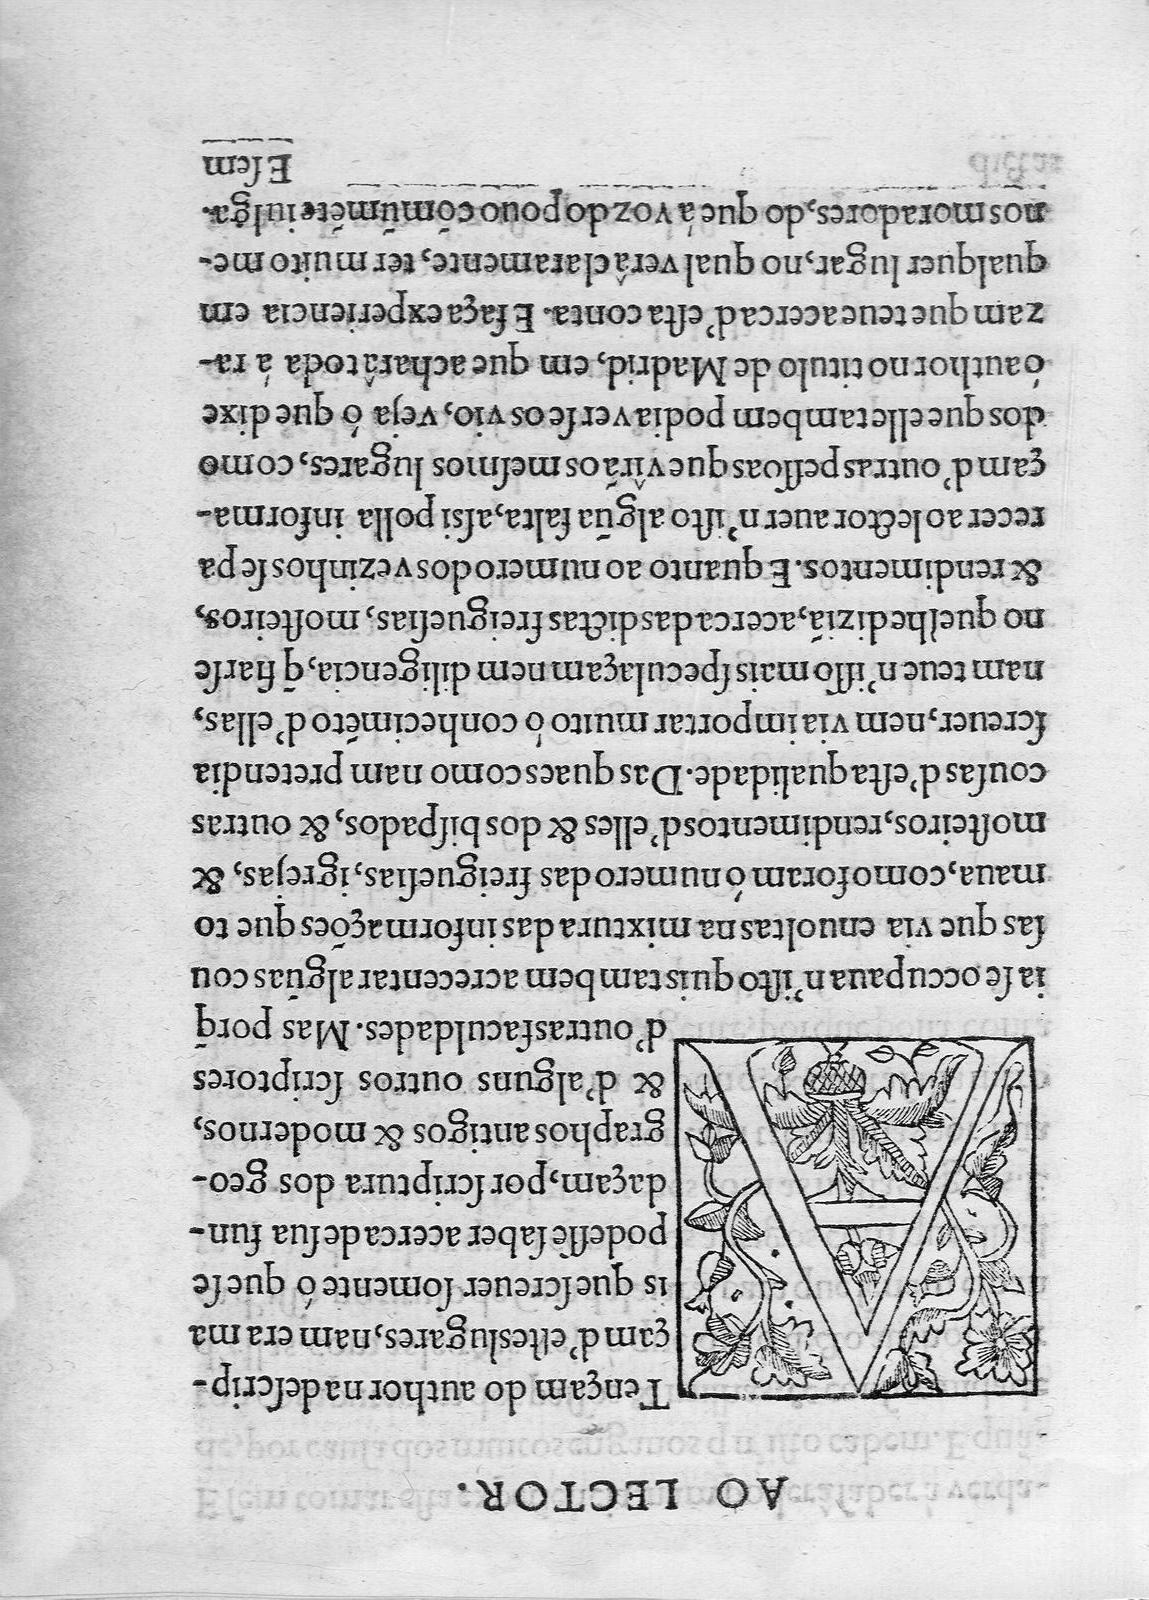 AO LECTOR.
A Tençam do author na deſcrip-
çam d'eſtes lugares, nam era ma
is que ſcreuer ſomente ó que ſe
podeſſe ſaber acerca de ſua fun-
daçam, por ſcriptura dos geo-
graphos antigos & modernos,
& d'alguns outros ſcriptores
d'outras faculdades. Mas porq̃
ia ſe occupaua n'iſto quis tambem acrecentar algũas cou
ſas que via enuoltas na mixtura das informações que to
maua, como foram ó numero das freigueſias, igrejas, &
moſteiros, rendimentos d'elles & dos biſpados, & outras
couſas d'eſta qualidade. Das quaes como nam pretendia
ſcreuer, nem via importar muito ó conhecimẽto d'ellas,
nam teue n'iſſo mais ſpeculaçam nem diligencia, q̃ fiarſe
no que lhe diziã, acerca das dictas freigueſias, moſteiros,
& rendimentos. E quanto ao numero dos vezinhos ſe pa
recer ao lector auer n'iſto algũa falta, aſsi polla informa-
çam d'outras peſſoas que virâm os meſmos lugares, como
dos que elle tambem podia ver ſe os vio, veja ó que dixe
ó author no titulo de Madrid, em que acharâ toda á ra-
zam que teue acerca d'eſta conta. E faça experiencia em
qualquer lugar, no qual verâ claramente, ter muito me-
nos moradores, do que á voz do pouo cómũmẽte iulga.
E ſem